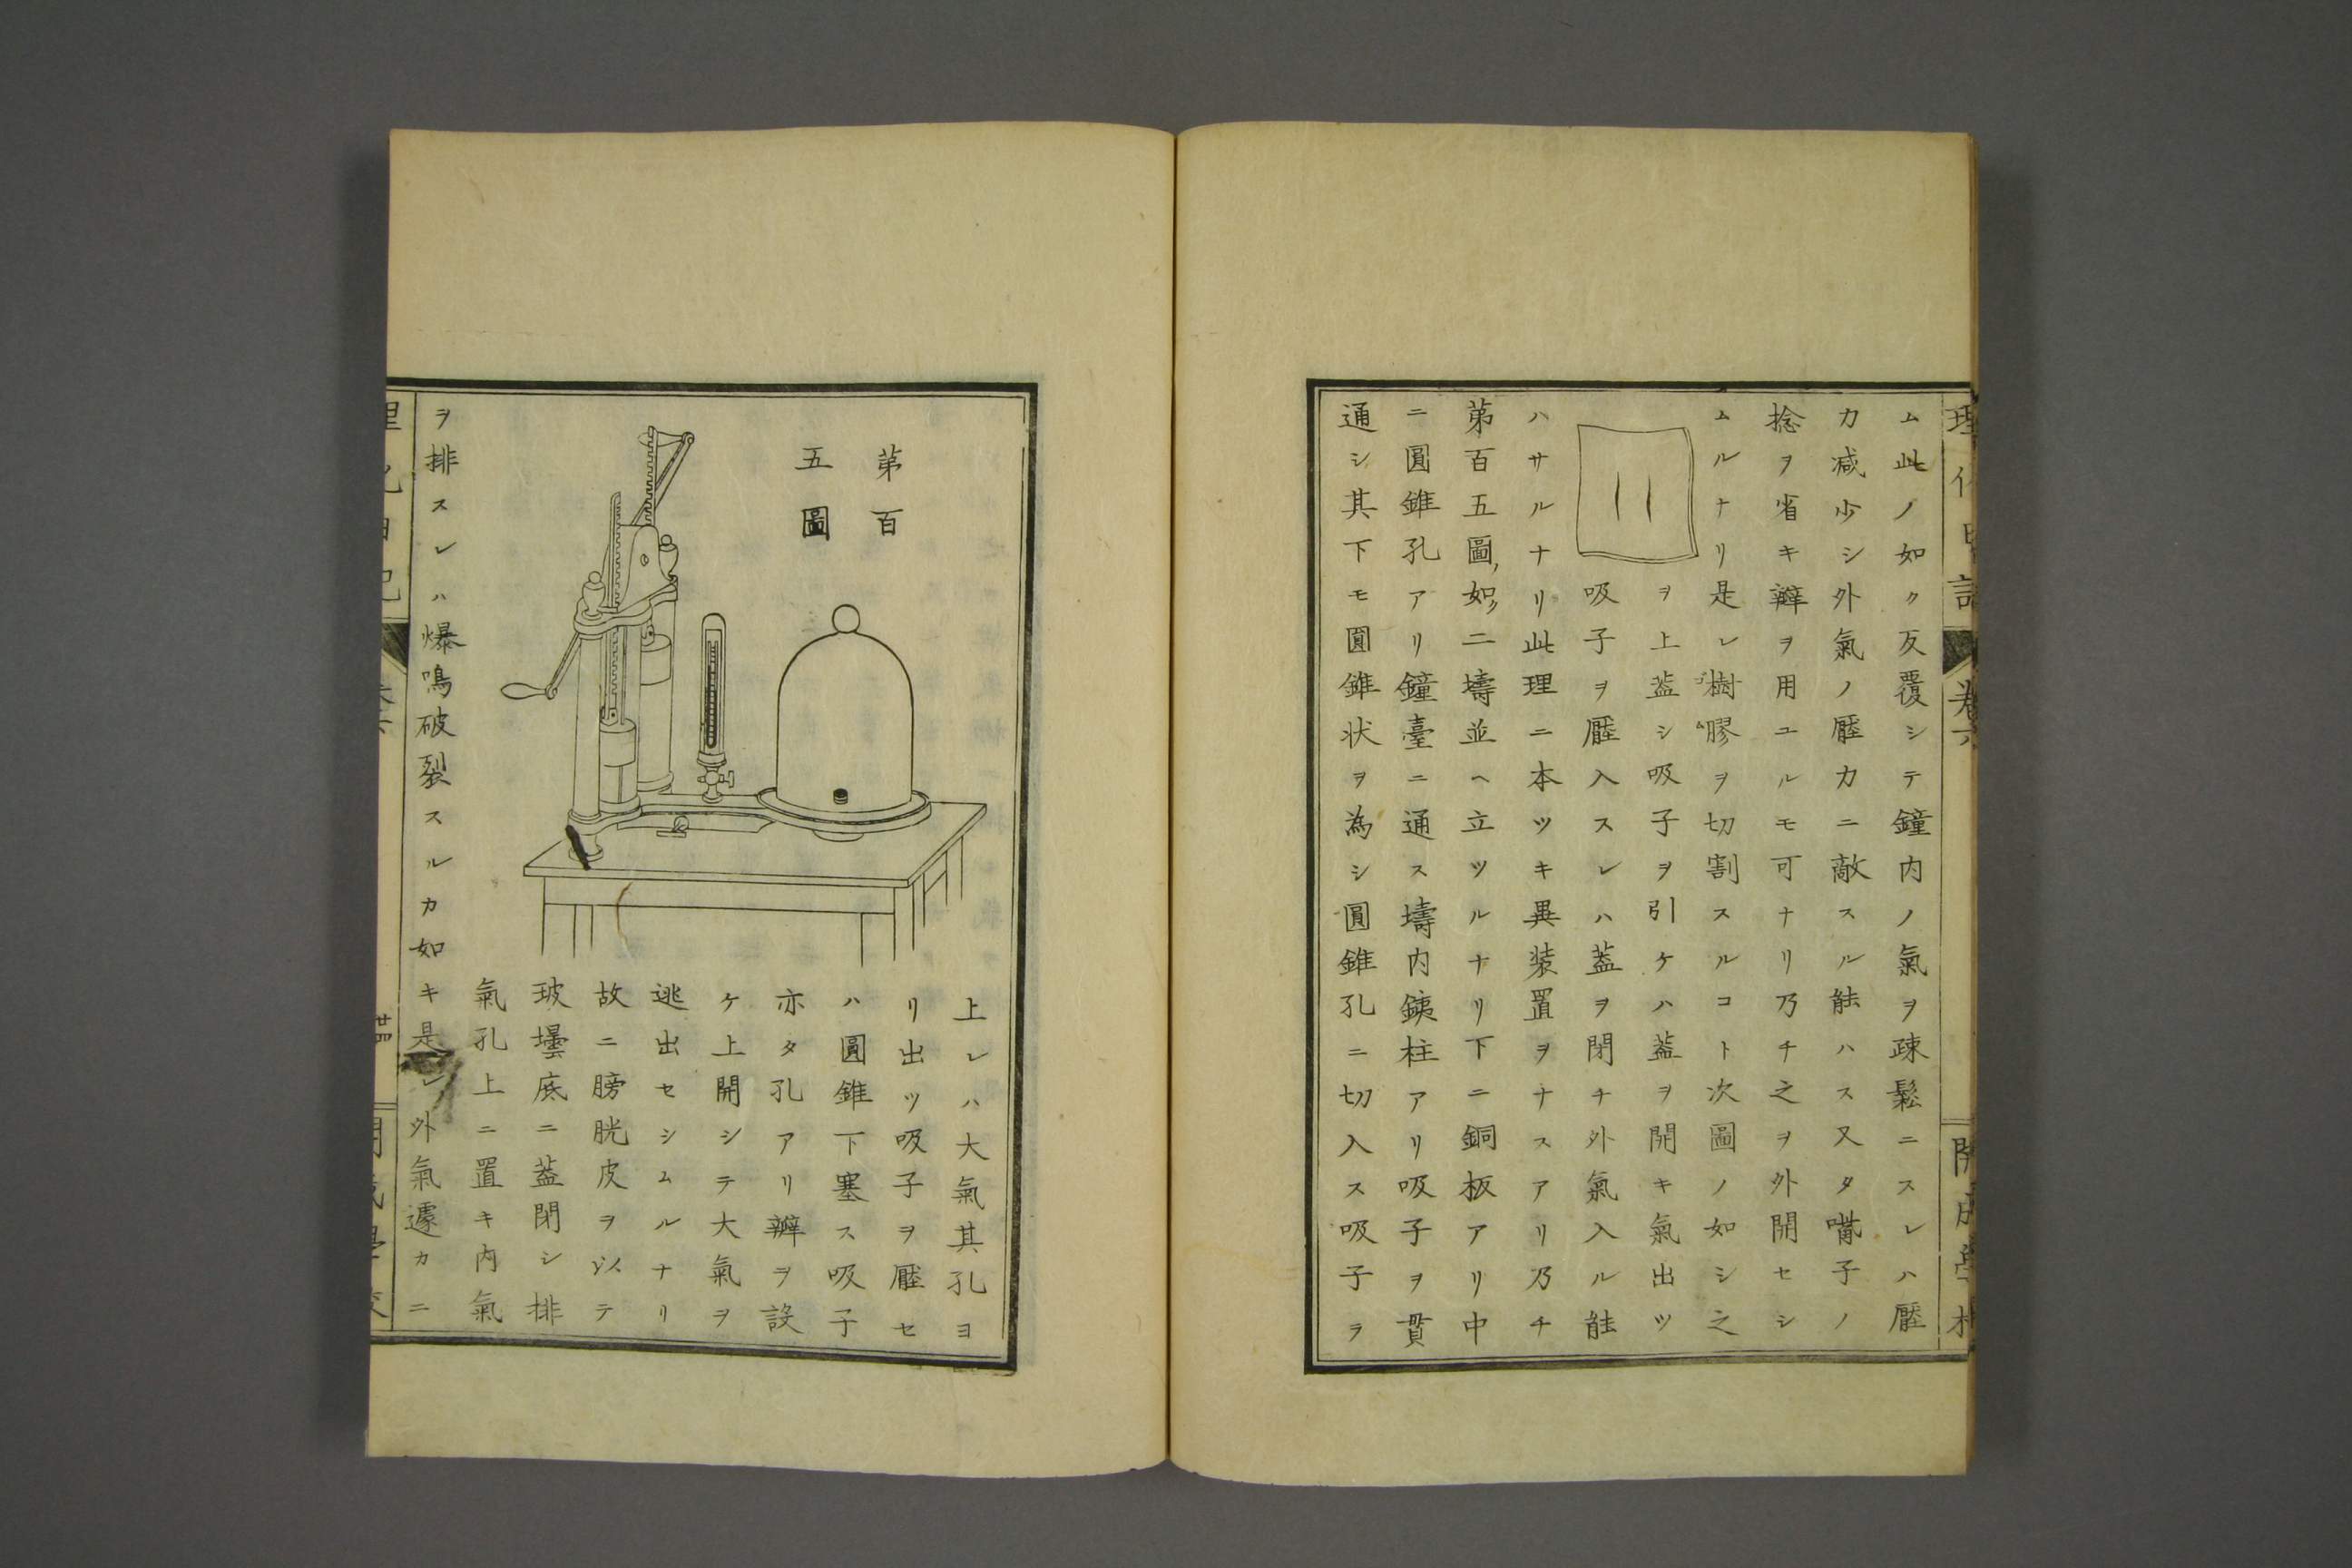 ム此ノ如ク反覆シテ鐘内ノ氣ヲ疎鬆ニスレハ壓
力減少シ外氣ノ壓力ニ敵スル能ハス又タ嘴子ノ
捻ヲ省キ辧ヲ用ユルモ可ナリ乃チ之ヲ外開セシ
ムルナリ是レ樹膠ヲ切割スルコト次圖ノ如シ之
ヲ上葢シ吸子ヲ引ケハ葢ヲ開キ氣出ツ
吸子ヲ壓入スレハ葢ヲ閉チ外氣入ル能
ハサルナリ此理ニ本ツキ異装置ヲナスアリ乃チ
苐百五圖ノ如ク二壔並ヘ立ツルナリ下ニ銅板アリ中
ニ圓錐孔アリ鐘臺ニ通ス壔内銕柱アリ吸子ヲ貫
通シ其下モ圓錐状ヲ為シ圓錐孔ニ切入ス吸子ヲ
苐百
五圖
上レハ大氣其孔ヨ
リ出ツ吸子ヲ壓セ
ハ圓錐下塞ス吸子
亦タ孔アリ辧ヲ設
ケ上開シテ大氣ヲ
逃出セシムルナリ
故ニ膀胱皮ヲ以テ
玻壜底ニ葢閉シ排
氣孔上ニ置キ内氣
ヲ排スレハ爆鳴破裂スルカ如キ是レ外氣遽カニ
卷六